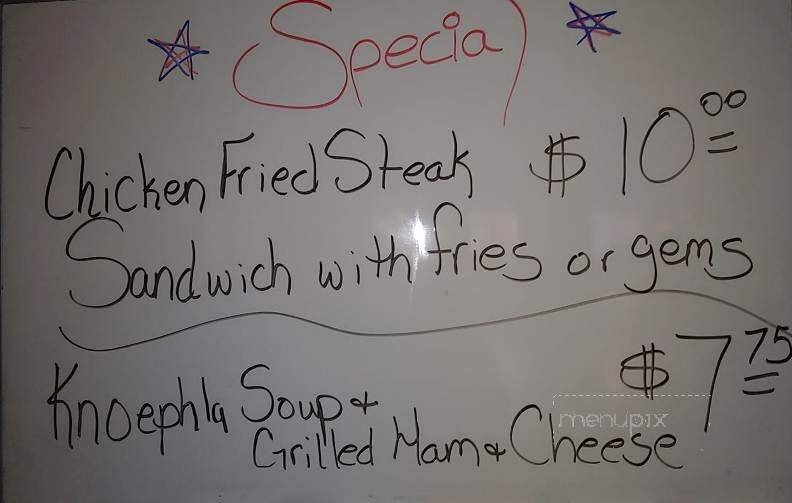 Special
Chicken Fried Steak $10.00
Sandwich with fries or gems
Knoephla Soup & $7.75
Grilled Ham & Cheese
menupix